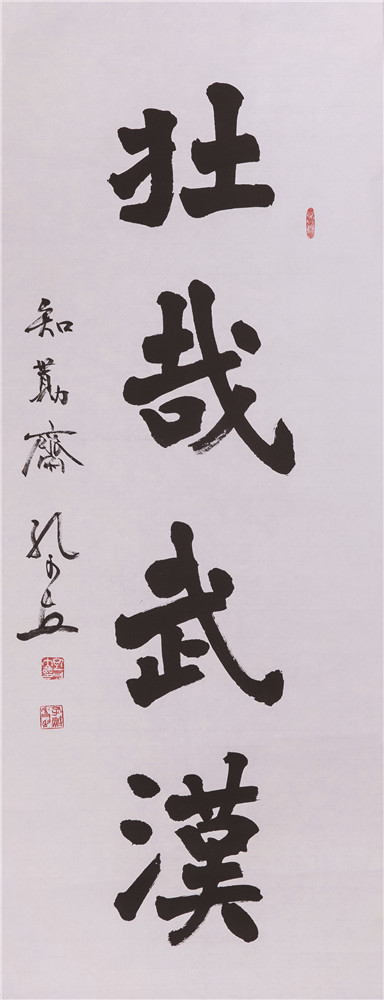 壯哉武漢
知勤齋